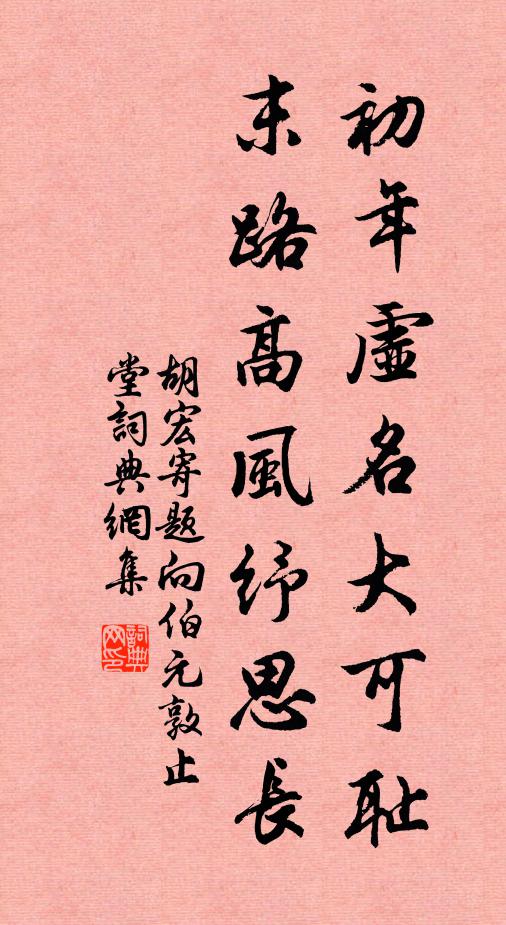 初年虛名大可耻
末路高風紓思長
胡宏寄題向伯元敦止
堂詞典網集
詞典网印